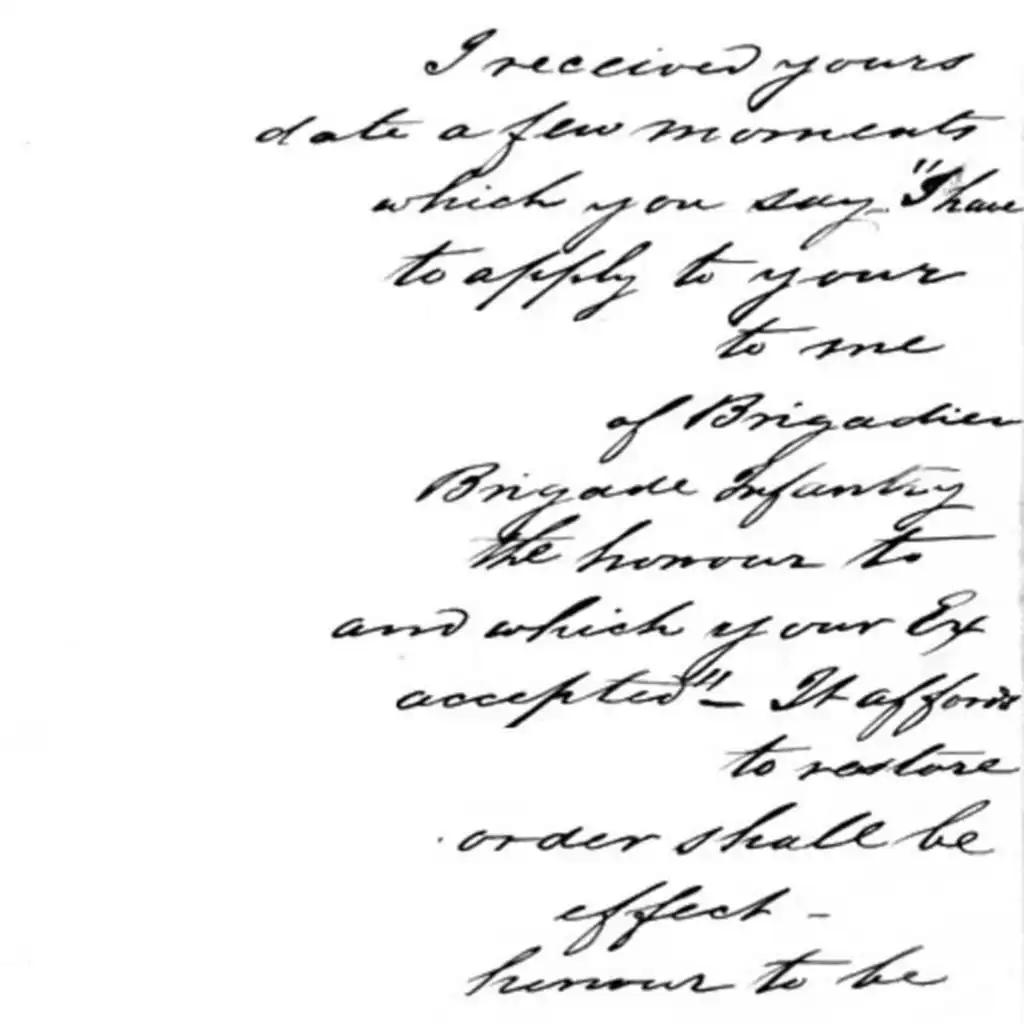 I received yours
date a few moments
which you say "I have
to apply to your
to me
of Brigadier
Brigade Infantry
the honour to
and which your Ex
accepted" – It affords
to restore
order shall be
effect –
honour to be